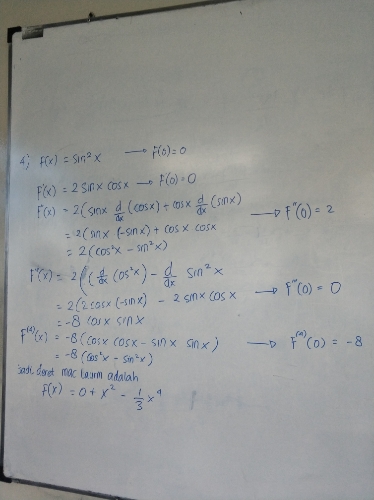 4) f(x) = sin²x → f(0)=0
f'(x) = 2 sinx cosx → f'(0)=0
f''(x) = 2(sinx d/dx (cosx) + cosx d/dx (sinx)
= 2(sinx (-sinx) + cosx cosx → f''(0) = 2
= 2(cos²x - sin²x)
f'''(x) = 2((d/dx cos²x) - d/dx sin²x
= 2(2cosx(-sinx) - 2 sinx cosx → f'''(0) = 0
= -8 cosx sinx
f⁽⁴⁾(x) = -8(cosx cosx - sinx sinx) → f⁽⁴⁾(0) = -8
= -8(cos²x - sin²x)
Jadi deret mac laurin adalah
f(x) = 0 + x² - 1/3 x⁴